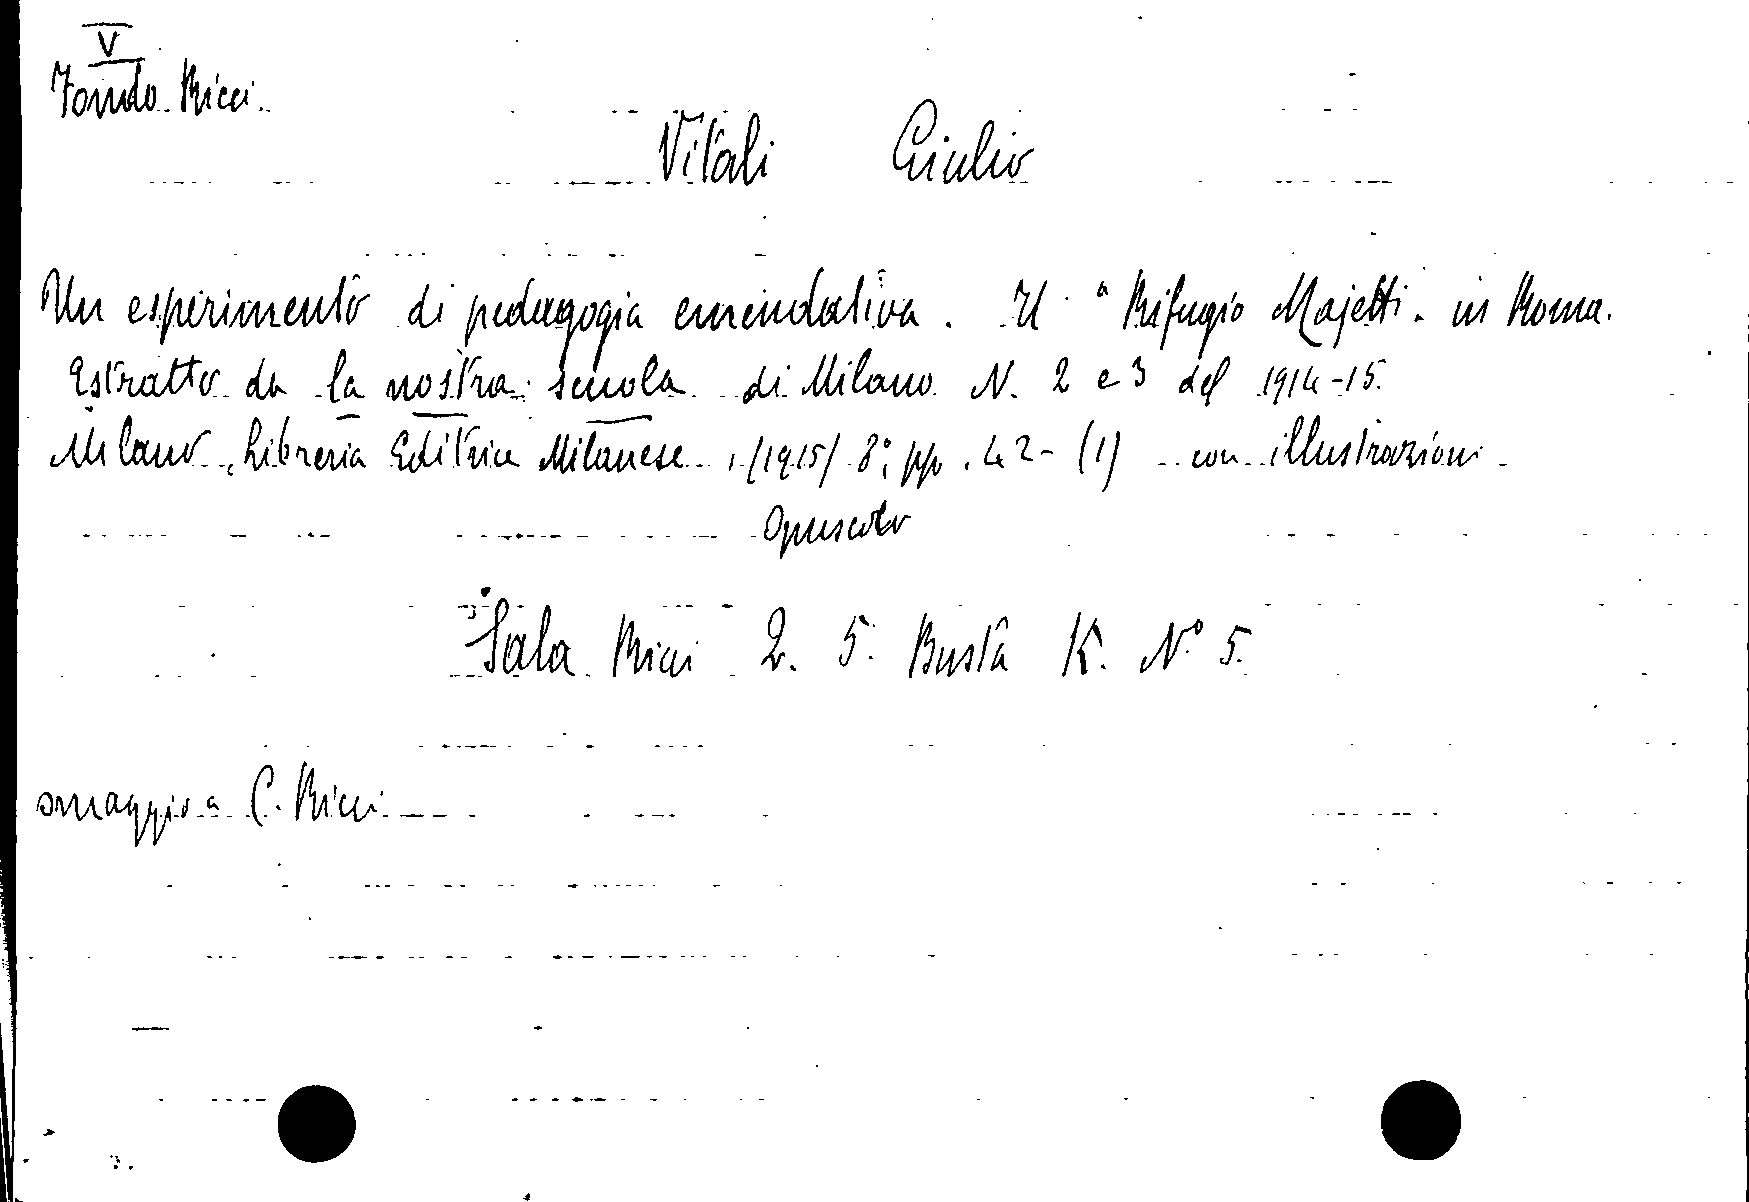 V
Fondo Ricci.
Vitali Giulio
Un esperimento di pedagogia emendativa. Il "Rifugio Majetti" in Roma.
Estratto da la nostra scuola di Milano N. 2 e 3 del 1914-15.
Milano, Libreria Editrice Milanese, /1915/ 8°, pp. 42-(1) con illustrazioni
Opuscolo
Sala Ricci 2. 5. Busta K. N° 5.
omaggio a C. Ricci